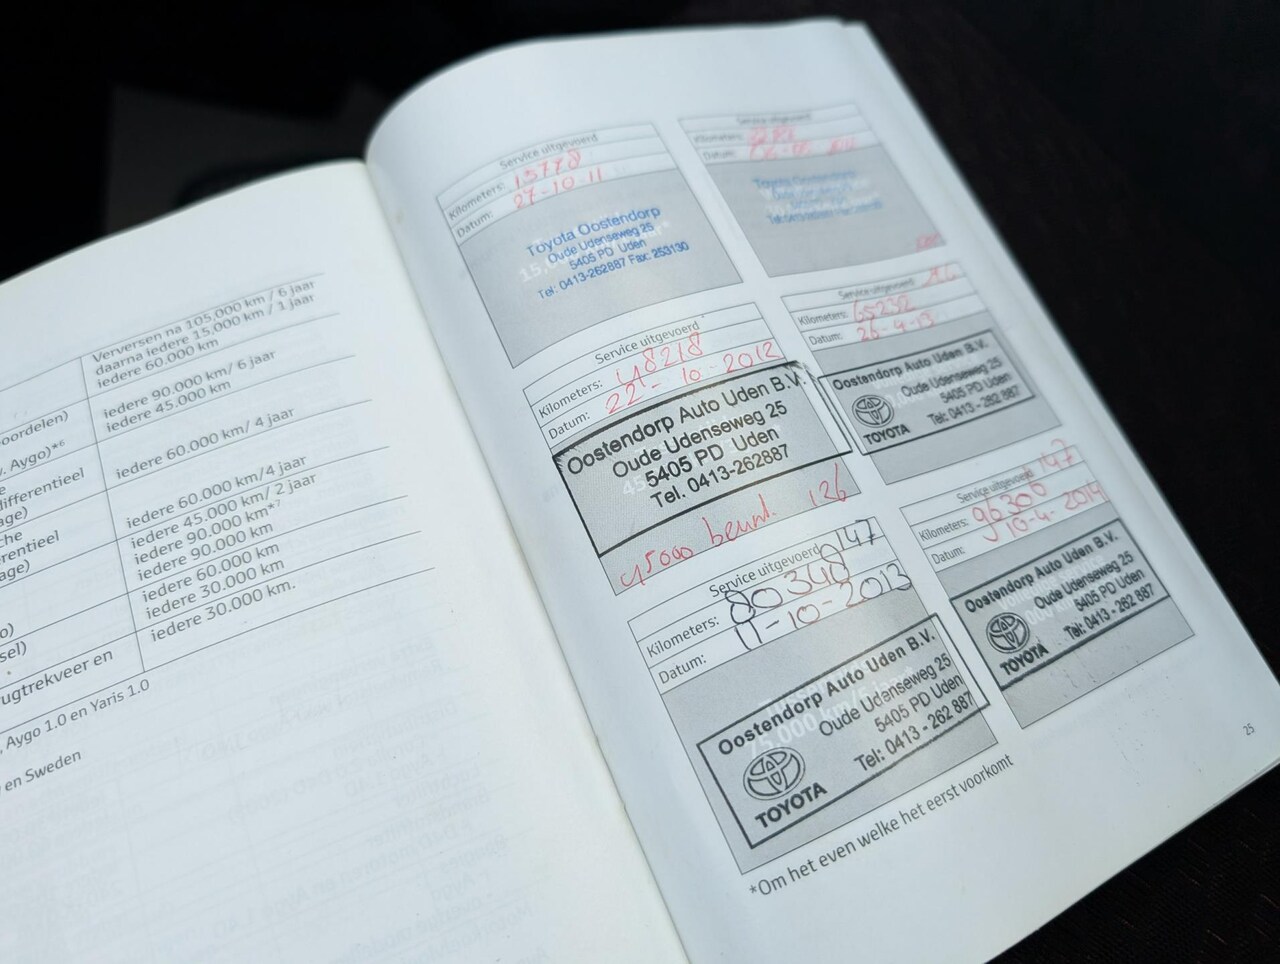 Verversen na 105.000 km / 6 jaar
daarna iedere 15.000 km / 1 jaar
iedere 60.000 km
iedere 90.000 km/ 6 jaar
oordelen) iedere 45.000 km
Aygo)*6
iedere 60.000 km/ 4 jaar
differentieel
age)
che iedere 60.000 km/4 jaar
rentieel iedere 45.000 km/ 2 jaar
age) iedere 90.000 km*7
iedere 90.000 km
iedere 60.000 km
o) iedere 30.000 km
sel) iedere 30.000 km.
ugtrekveer en
, Aygo 1.0 en Yaris 1.0
en Sweden
Service uitgevoerd
Kilometers: 15778
Datum: 27-10-11
Toyota Oostendorp
Oude Udenseweg 25
5405 PD Uden
Tel: 0413-262887 Fax: 253130
Service uitgevoerd
Kilometers:
Datum:
Toyota Oostendorp
Service uitgevoerd
Kilometers: 48218
Datum: 22-10-2012
Oostendorp Auto Uden B.V.
Oude Udenseweg 25
5405 PD Uden
Tel. 0413-262887
45000 beurt. 126
Service uitgevoerd
Kilometers: 65232
Datum: 26-4-13
Oostendorp Auto Uden B.V.
Oude Udenseweg 25
5405 PD Uden
Tel: 0413 - 262 887
TOYOTA
Service uitgevoerd 147
Kilometers: 80348
Datum: 11-10-2013
Oostendorp Auto Uden B.V.
Oude Udenseweg 25
5405 PD Uden
Tel: 0413 - 262 887
TOYOTA
Service uitgevoerd 147
Kilometers: 96306
Datum: 10-4-2014
Oostendorp Auto Uden B.V.
Oude Udenseweg 25
5405 PD Uden
Tel: 0413 - 262 887
TOYOTA
*Om het even welke het eerst voorkomt
25